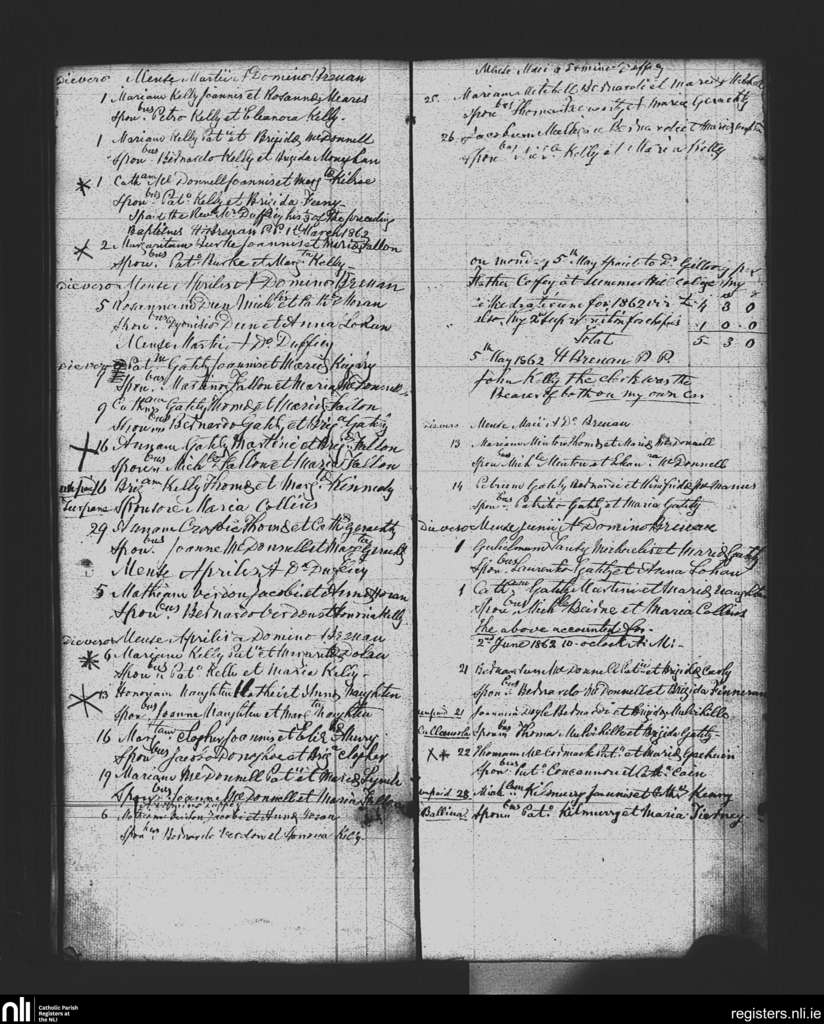 Die vero Mense Martii A Domino Brenan
1 Mariam Kelly Joannis et Rosannæ Meares
Spon.bus Petro Kelly et Eleanora Kelly.
1 Mariam Kelly Pat.ii et Brigidæ McDonnell
Spon.bus Bernardo Kelly et Brigida Monaghan
1 Cath.am Mc Donnell Joannis et Marg.tæ Kilroe
Spon.bus Pat.o Kelly et Brigida Feeny.
I paid the Revd Mr Duffy his of the preceding
Baptisms H Brenan P P 1st March 1862
2 Margaritam Burke Joannis et Mariæ Fallon
Spon.bus Pat.o Burke et Marg.ta Kelly
Die vero Mense Aprilis A Domino Brenan
5 Rosannam Deen Mich.lis et Cath.æ Moran
Spon.bus Dyonisio Deen et Anna Lohan
Mense Martii A Do. Duffey
Die vero
7 Pat.m Gately Joannis et Mariæ
Spon.bus Fallon et Maria McDonnell
9 Gately Thomæ et Mariæ Fallon
Spon.bus Bernardo Gately et Brig.a Gately
16 Annam Gately Martini et Brig.æ Fallon
Spon.bus Mich.le Fallon et Maria Fallon
16 Brig.am Kelly Thomæ et Marg.tæ Kennedy
Sponsore Maria Collins
29 et Cath.æ Geraghty
Spon.bus Joanne McDonnell et Marg.ta
Mense Aprilis A Do. Duffey
5 Mathiam Verdon Jacobi et Annæ Horan
Spon.bus Bernardo Verdon et Honoria Kelly
Die vero Mense Aprilis a Domino Brenan
6 Mariam Kelly Pat.ii et Dolan
Spon.bus Pat.o Kelly et Maria Kelly.
13 Honoram Naughten Mathei et Annæ Naughten
Spon.bus Joanne Naughten et Marg.ta Naughten
16 Marg.tam Clopher Joannis et Eliz.æ Murry
Spon.bus Jacobo Donoghoe et Brig.a Clopher
19 Mariam McDonnell Pat.ii et Mariæ Lynch
Spon.bus Joanne McDonnell et Maria Fallon
6 Mathiam Verdon Jacobi et Annæ Horan
Spon.bus Bernardo Verdon et Honoria Kelly
Mense Maii a Domino Duffey
25 Mariam Mitchell Bernardi et Mariæ
Spon.bus Thoma et Maria Geraghty
26 Jacobum Bernardi et Mariæ
Spon.bus Kelly et Maria Kelly
on monday 5th May I paid to Dr Gillooly pr
Father Coffey at Summerhill College my
Cathedraticum for 1862 viz £ 4 3 0
also my 2d for chapels 1 0 0
Total 5 3 0
5th May 1862 H Brenan P. P.
John Kelly the clerk was the
Bearer of both on my own Car
Die vero Mense Maii A Do. Brenan
13 Mariam Minton Thomæ et Mariæ McDonnell
Spon.bus Mich.le Minton et McDonnell
14 Petrum Gately Bernardi et Winifridæ McManus
Spon.bus Patritio Gately et Maria Gately
Die vero Mense Junii A Domino Brenan
1 Gulielmum Michaelis et Mariæ Gately
Spon.bus Laurentio Gately et Anna Lohan
1 Cath.am Gately Martini et Mariæ Naughten
Spon.bus Mich.le Beirne et Maria Collins
The above accounted for.
2nd June 1862 10 oclock A. M.
21 Bernardum McDonnell Pat.ii et Brigidæ Carly
Spon.bus Bernardo McDonnell et Brigida Finneran
unpaid 21 Joannem Doyle Bernardi et Brigidæ Mulvihille
Spon.bus Thoma Mulvihill et Brigida Gately
22 Thomam McCormack Pat.ii et Mariæ
Spon.bus Pat.o Concannon et Cath.a Cain
unpaid 28 Mich.lem Kilmurry Joannis et Cath.æ Keary
Ballina Spon.bus Pat.o Kilmurry et Maria Tierney
nli Catholic Parish
Registers at
the NLI
registers.nli.ie